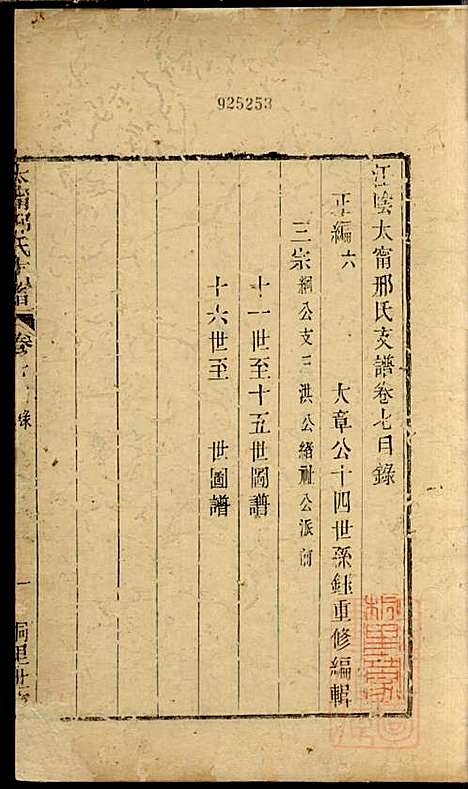 925253
江陰太甯邢氏支譜卷七目錄
正編六　大章公十四世孫鈺重修編輯
三宗綱公支三洪公緒祉公派
十一世至十五世圖譜
十六世至　世圖譜
太甯邢氏支譜
卷七
目錄
一